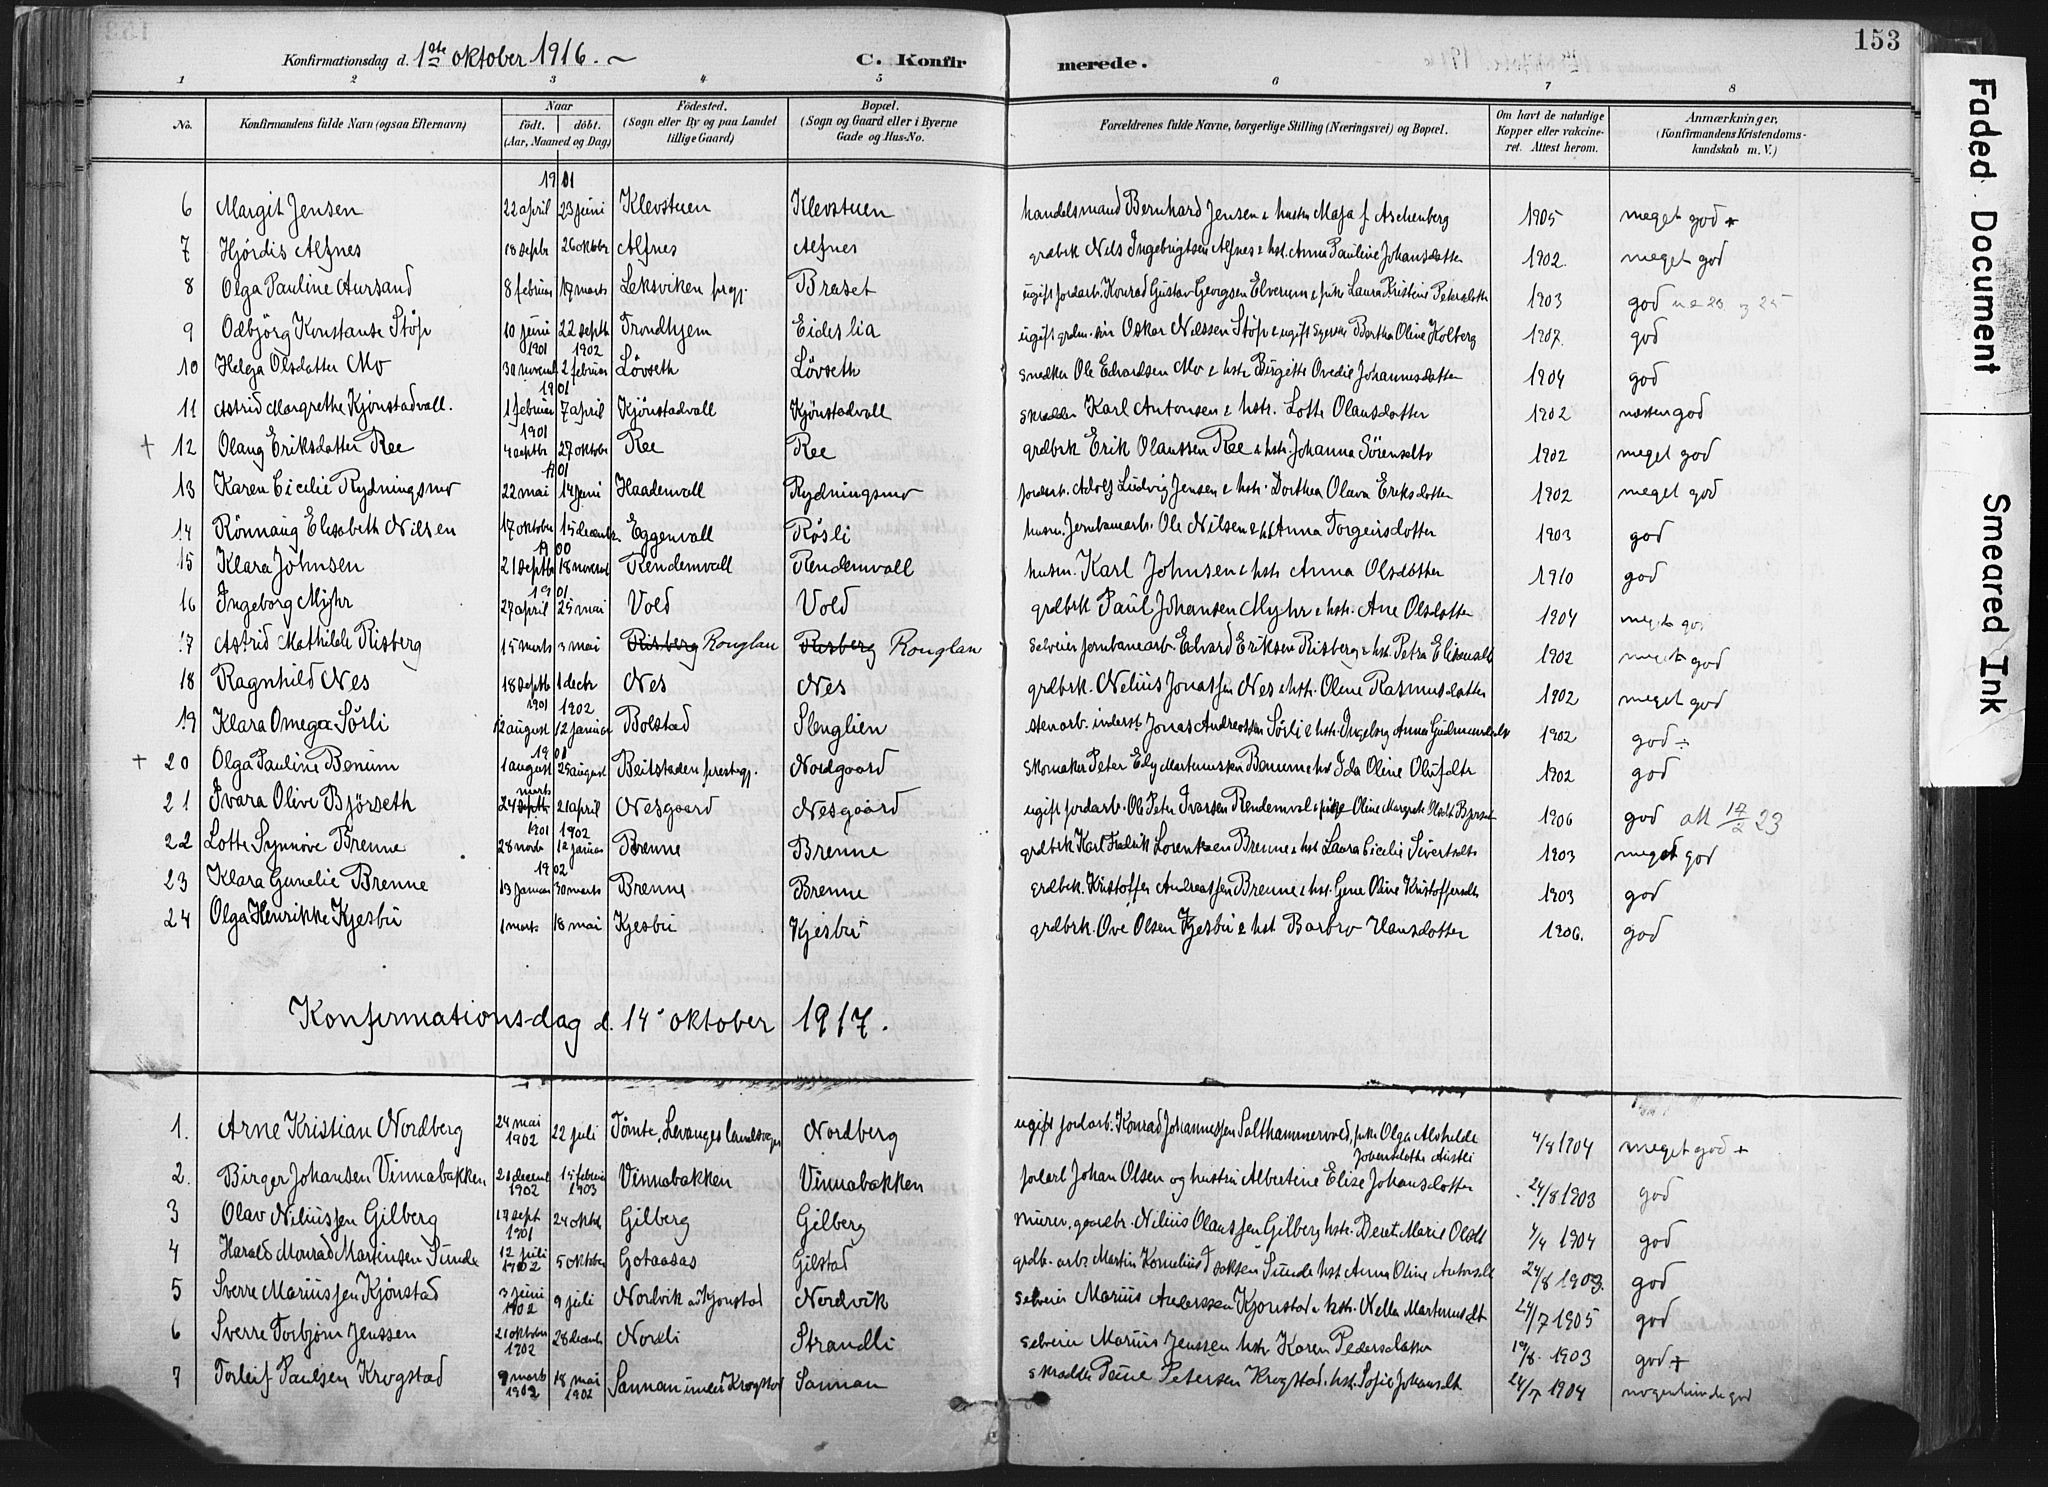 153
Konfirmationsdag d. 1ste oktober 1916.
C. Konfirmerede.
1 2 3 4 5 6 7 8
No. Konfirmandens fulde Navn (ogsaa Efternavn) Naar födt. döbt. (Aar, Maaned og Dag) Födested. (Sogn eller By og paa Landet tillige Gaard) Bopæl. (Sogn og Gaard eller i Byerne Gade og Hus-No. Forældrenes fulde Navne, borgerlige Stilling (Næringsvei) og Bopæl. Om havt de naturlige Kopper eller vakcineret. Attest herom. Anmærkninger, (Konfirmandens Kristendomskundskab m. V.)
1901
6 Margit Jensen 22 april 23 juni Klevstuen Klevstuen handelsmand Bernhard Jensen & hustru Maja f. Aschenberg 1905 meget god +
7 Hjördis Alfnes 18 septbr 26 oktobr Alfnes Alfnes grdbrk Nils Ingebrigtsen Alfnes & hst. Anna Pauline Johansdatter 1902 meget god
8 Olga Pauline Aursand 8 februar 17 marts Leksviken prgj. Braset ugift jordarb. Konrad Gustav Georgsen Elverum & pike Laura Kristine Petersdatter 1903 god
9 Odbjörg Konstanse Stöp 10 juni 22 septb Trondhjem Eideslia ugift Oskar Nilssen Stöp & ugift Bertha Oline Kolberg 1907. god
1901 1902
10 Helga Olsdatter Mo 30 novemb 2 februar Lövseth Lövseth snedker Ole Edvardsen Mo & hstr Birgitte Ovedie Johannesdatter 1904 god
1901
11 Astrid Margrethe Kjönstadvall. 1 februar 7 april Kjönstadvall Kjönstadvall skrædder Karl Antonsen & hstr. Lotte Olausdatter 1902 næsten god
1901
+ 12 Olaug Eriksdatter Ree 4 septbr 27 oktobr Ree Ree grdbrk Erik Olaussen Ree & hstr. Johanna Sörensdtr 1902 meget god
1901
13 Karen Cicelie Rydningsmo 22 mai 14 juni Haadenvall Rydningsmo jordarb. Adolf Ludvig Jensen & hstr. Dorthea Olava Eriksdatter 1902 meget god
14 Rönnaug Elisabeth Nilsen 17 oktober 15 decembr. Eggenvall Rösli husm. Jernbanearb. Ole Nilsen & hst Anna Torgeirsdatter 1903 god
1900
15 Klara Johnsen 21 septbr 18 novemb Rendemvall Rendemvall husm. Karl Johnsen & hstr Anna Olsdatter 1910 god
1901
16 Ingeborg Myhr 27 april 25 mai Vold Vold grdbrk Paul Johansen Myhr & hstr. Ane Olsdatter 1904 meget god
17 Astrid Mathilde Risberg 15 marts 3 mai Risberg Rouglan Risberg Rouglan Selveier jernbanearb. Edvard Eriksen Risberg & hst. Petra Elisendtr 1902 meget god
18 Ragnhild Nes 18 septb 1 decbr Nes Nes grdbrk. Nelius Jonassen Nes & hstr. Oline Rasmusdatter 1902 meget god
1901 1902
19 Klara Omega Sörli 12 august 12 januar Bolstad Slenglien stenarb. inderst Jonas Andreassen Sörli & hstr. Ingeborg Anna Gudmundsdtr 1902 god ÷
1901
+ 20 Olga Pauline Benum 1 august 25 august Beitstaden prestegj. Nordgaard Skomaker Peter Edv. Martinussen Benum & hst Ida Oline Olufsdtr 1902 god
marts
21 Ivara Olive Björseth 24 septbr 21 april Nesgaard Nesgaard ugift jordarb. Ole Peter Ivarsen Rendemval & pike Oline Margrete Björset 1906 god att 17/2 23
1901 1902
22 Lotte Synnöve Brenne 28 novbr 12 januar Brenne Brenne grdbrk Karl Fredrik Lorentzen Brenne & hst Laura Cicelie Sivertsdtr 1903 meget god
1902
23 Klara Gunelie Brenne 13 januar 30 marts Brenne Brenne grdbrk. Kristoffer Andreassen Brenne & hst. Gine Oline Kristoffersdtr 1903 god
24 Olga Henrikke Kjesbu 1 marts 18 mai Kjesbu Kjesbu grdbrk. Ove Olsen Kjesbu & hst. Barbro Hansdatter 1906. god
Konfirmationsdag d. 14 oktober 1917.
1. Arne Kristian Nordberg 24 mai 1902 22 juli Tömte, Levanger landsogn Nordberg ugift jordarb. Konrad Johannessen Salthammervold, pike Olga Alvhilde Johansdatter Austli 4/8 1904 meget god +
2. Birger Johansen Vinnabakken 21 decemb 1902 15 februar 1903 Vinnabakken Vinnabakken jordarb Johan Olsen og hustru Albertine Elise Johansdatter 24/8 1903 god
3 Olav Niliussen Gilberg 17 sept 1901 24 oktbr Gilberg Gilberg murer, gaardbr. Nilius Olaussen Gilberg hstr. Beret Marie Olsdt 1/4 1904 god
4 Harald Monrad Martinsen Sunde 12 juli 1902 5 oktober Gotaasas Gilstad grdb. arb. Martin Kornelius Isaksen Sunde hst Anna Oline Antonsdt 24/8 1903. god
5 Sverre Mariussen Kjönstad 3 juni 1902 9 juli Nordvik av Kjönstad Nordvik Selveier Marius Anderssen Kjönstad & hstr. Nella Martinusdt 24/7 1905 god
6 Sverre Torbjörn Jenssen 21 oktober 1902 28 decemb Nordli Strandli selveier Marius Jenssen hstr Karen Pedersdatter 19/8. 1903 god +
7 Torleif Paulsen Krogstad 9 marts 1902 18 mai 1902 Sannan under Krogstad Sannan skrædder Petersen Krogstad. hst. Sofie Johansdt 24/7 1904 nogenlunde god
Faded Document
Smeared Ink